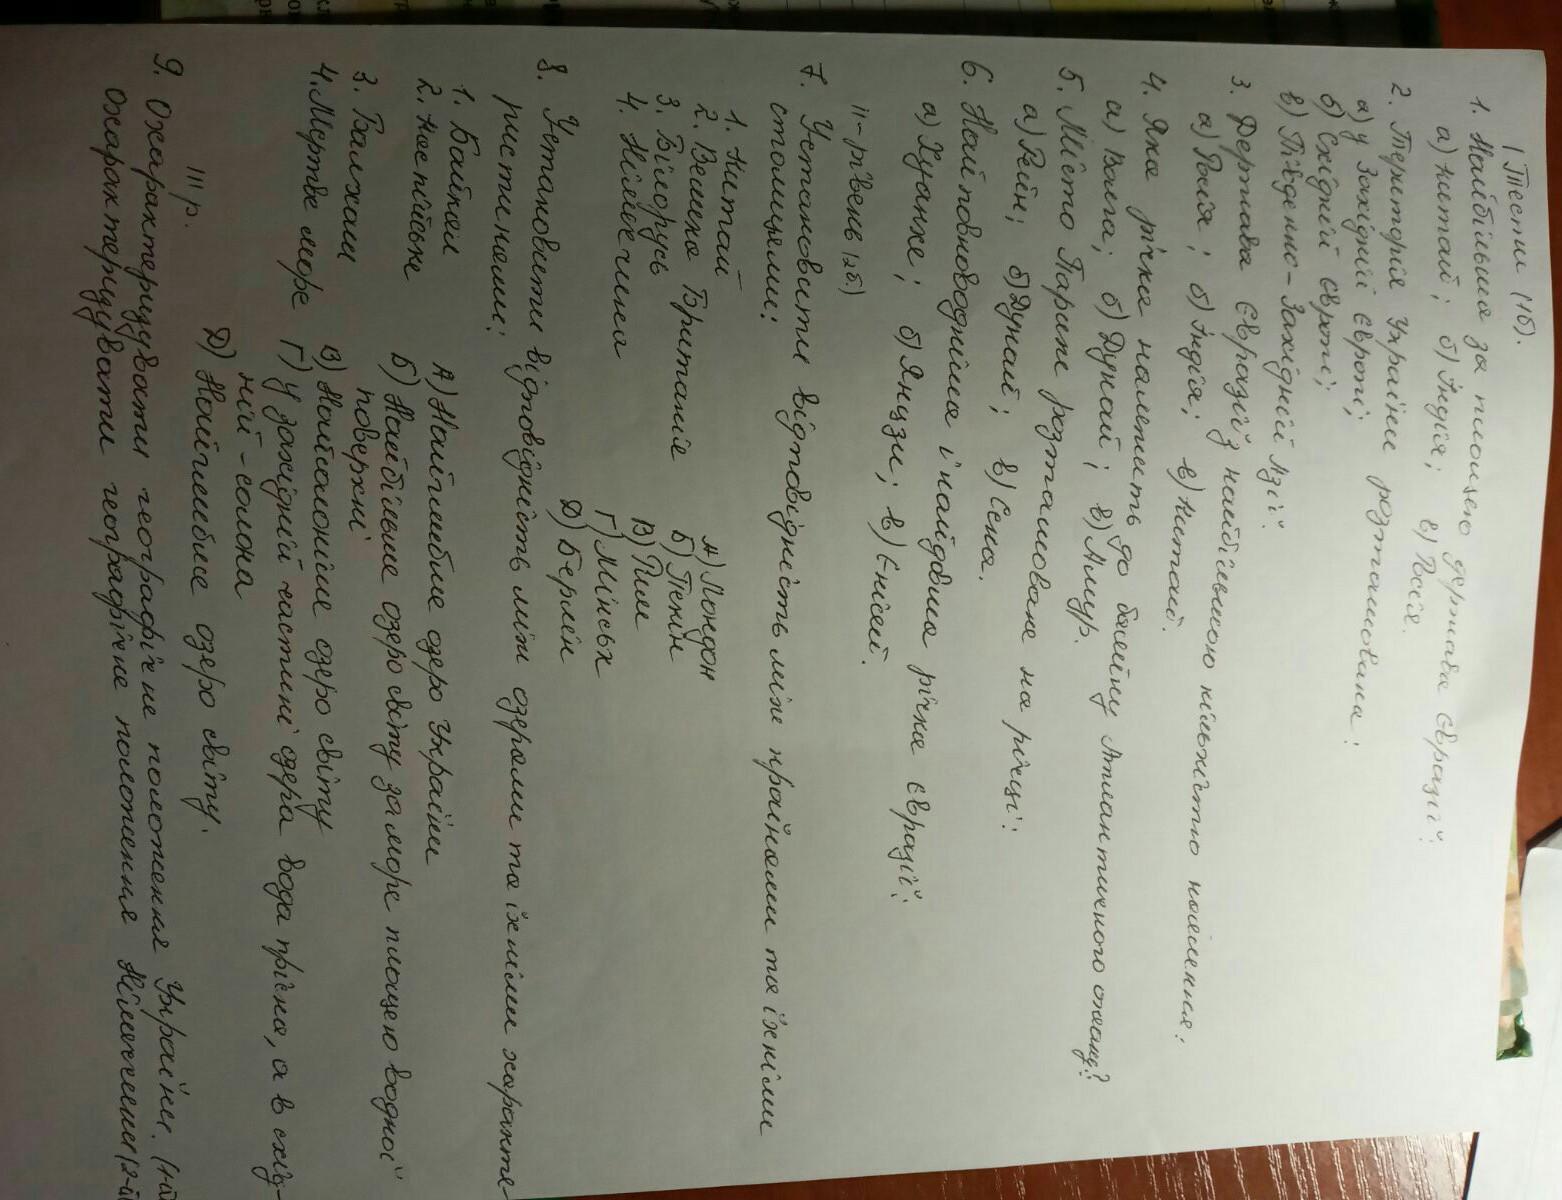 І Тести (1б).
1. Найбільша за площею держава Євразії:
а) Китай; б) Індія; в) Росія.
2. Територія України розташована:
а) у Західній Європі;
б) Східній Європі;
в) Південно-Західній Азії.
3. Держава Євразії з найбільшою кількістю населення:
а) Росія; б) Індія; в) Китай.
4. Яка річка належить до басейну Атлантичного океану?
а) Волга; б) Дунай; в) Амур.
5. Місто Париж розташоване на річці:
а) Рейн; б) Дунай; в) Сена.
6. Найповноводніша і найдовша річка Євразії:
а) Хуанхе; б) Янцзи; в) Єнісей.
ІІ-рівень (2б.)
7. Установити відповідність між країнами та їхніми
столицями:
1. Китай А) Лондон
2. Велика Британія Б) Пекін
3. Білорусь В) Рим
4. Німеччина Г) Мінськ
Д) Берлін
8. Установити відповідність між озерами та їхніми характе
ристиками:
1. Байкал А) Найглибше озеро України
2. Каспійське Б) Найбільше озеро світу за морс площею водної
поверхні
3. Балхаш В) Найсолоніше озеро світу
4. Мертве море Г) У західній частині озера вода прісна, а в схід-
ній - солона
Д) Найглибше озеро світу.
ІІІ р.
9. Охарактеризувати географічне положення України. (1-й
Охарактеризувати географічне положення Німеччини (2-й